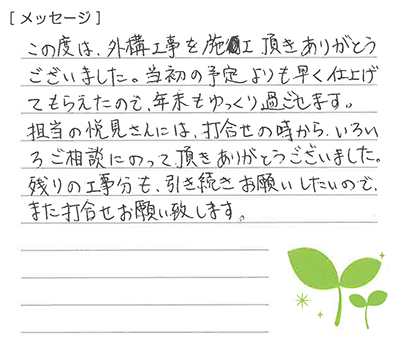 [メッセージ]
この度は、外構工事を施工頂きありがとう
ございました。当初の予定よりも早く仕上げ
てもらえたので、年末もゆっくり過ごせます。
担当の悦見さんには、打合せの時から、いろい
ろご相談にのって頂きありがとうございました。
残りの工事分も、引き続きお願いしたいので、
また打合せお願い致します。